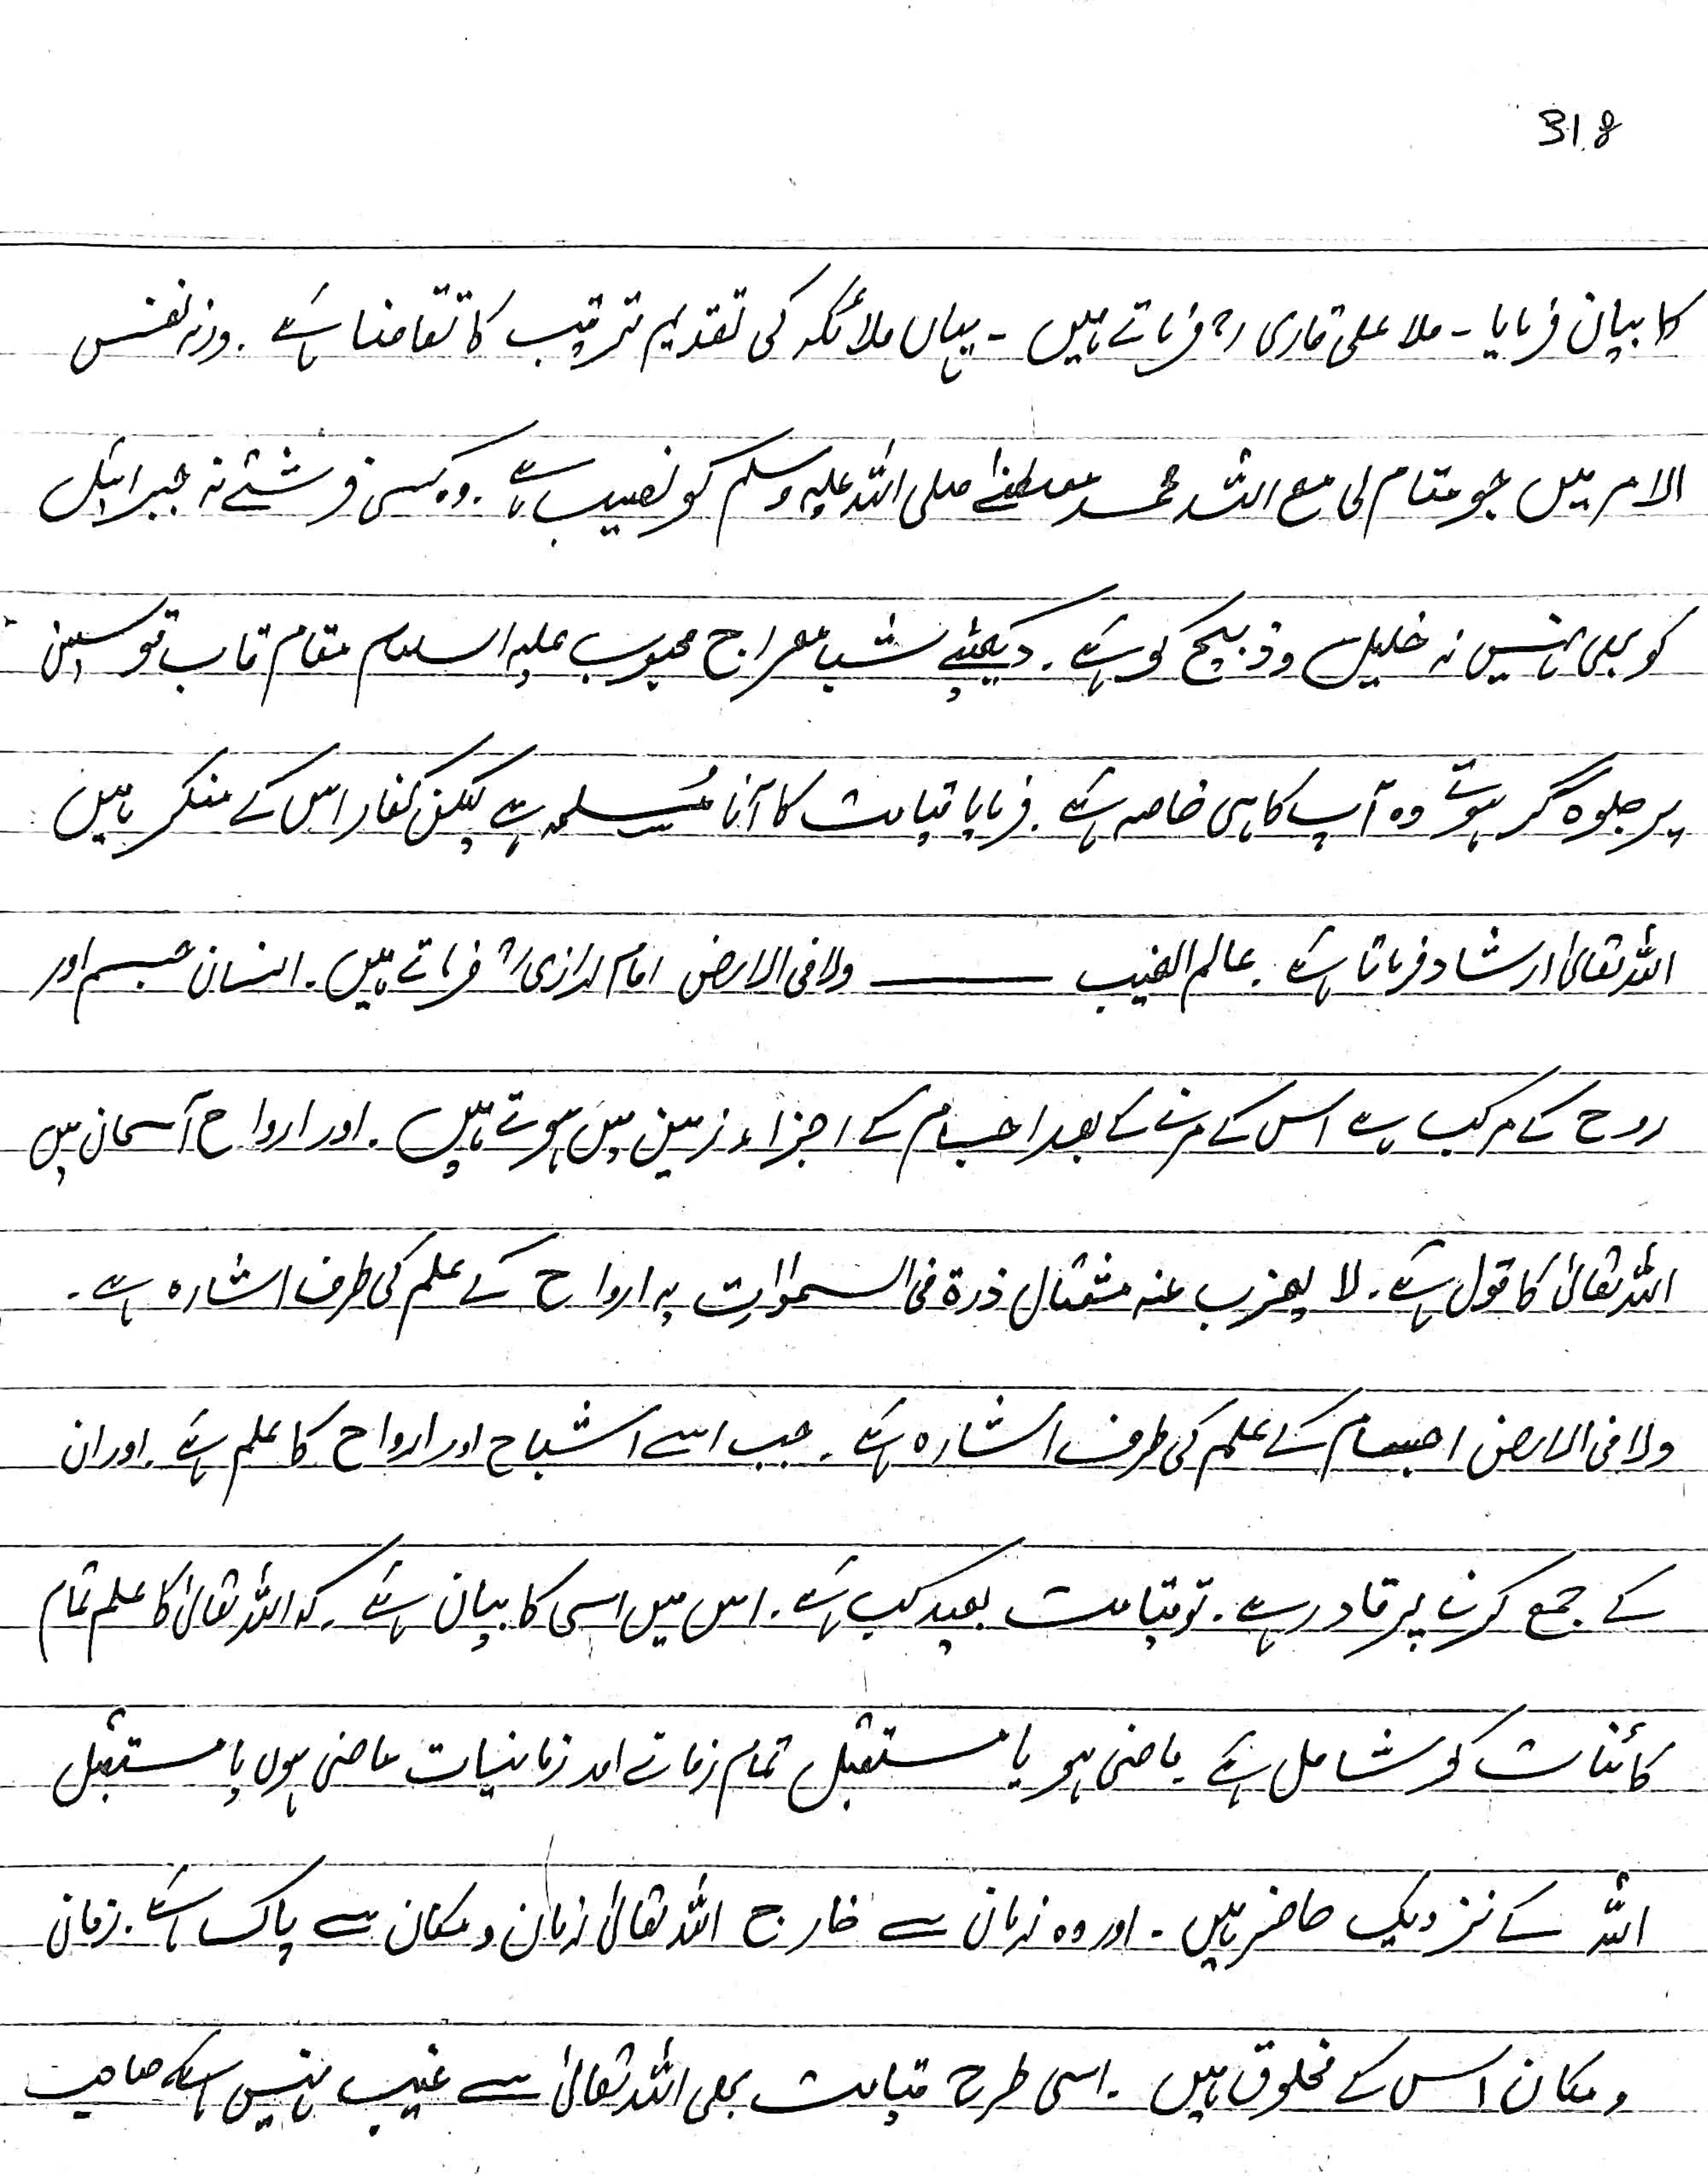 318
کا بیان فرمایا - ملا علی قاری رح فرماتے ہیں - یہاں ملائکہ کی تقدیم ترتیب کا تقاضا ہے . ورنہ نفس
الامر میں جو مقام لی مع اللہ محمد مصطفےٰ صلی اللہ علیہ وسلم کو نصیب ہے . وہ کسی فرشتے نہ جبرائیل
کو بھی نہیں نہ خلیل و ذبیح کو ہے . دیکھئیے شب معراج محبوب علیہ السلام مقام قاب قوسین
پر جلوہ گر ہوئے وہ آپ کا ہی خاصہ ہے . فرمایا قیامت کا آنا مُسلمہ ہے لیکن کفار اس کے منکر ہیں
اللہ تعالیٰ ارشاد فرماتا ہے . عالم الغیب ——— ولا فی الارض امام رازی رح فرماتے ہیں . انسان جسم اور
روح کے مرکب ہے اس کے مرنے کے بعد اجسام کے اجزاء زمین میں ہوتے ہیں . اور ارواح آسمان میں
اللہ تعالیٰ کا قول ہے . لا یعزب عنہ مثقال ذرة فی السموات یہ ارواح کے علم کی طرف اشارہ ہے .
ولا فی الارض اجسام کے علم کی طرف اشارہ ہے . جب اسے اشباح اور ارواح کا علم ہے . اور ان
کے جمع کرنے پر قادر ہے . تو قیامت بعید کب ہے . اس میں اسی کا بیان ہے . کہ اللہ تعالیٰ کا علم تمام
کائنات کو شامل ہے ماضی ہو یا مستقبل تمام زمانے اور زمانیات ماضی ہوں یا مستقبل
اللہ کے نزدیک حاضر ہیں . اور وہ زمان سے خارج اللہ تعالیٰ زمان و مکان سے پاک ہے . زمان
و مکان اس کے مخلوق ہیں . اسی طرح قیامت بھی اللہ تعالیٰ سے غیب نہیں صاحب